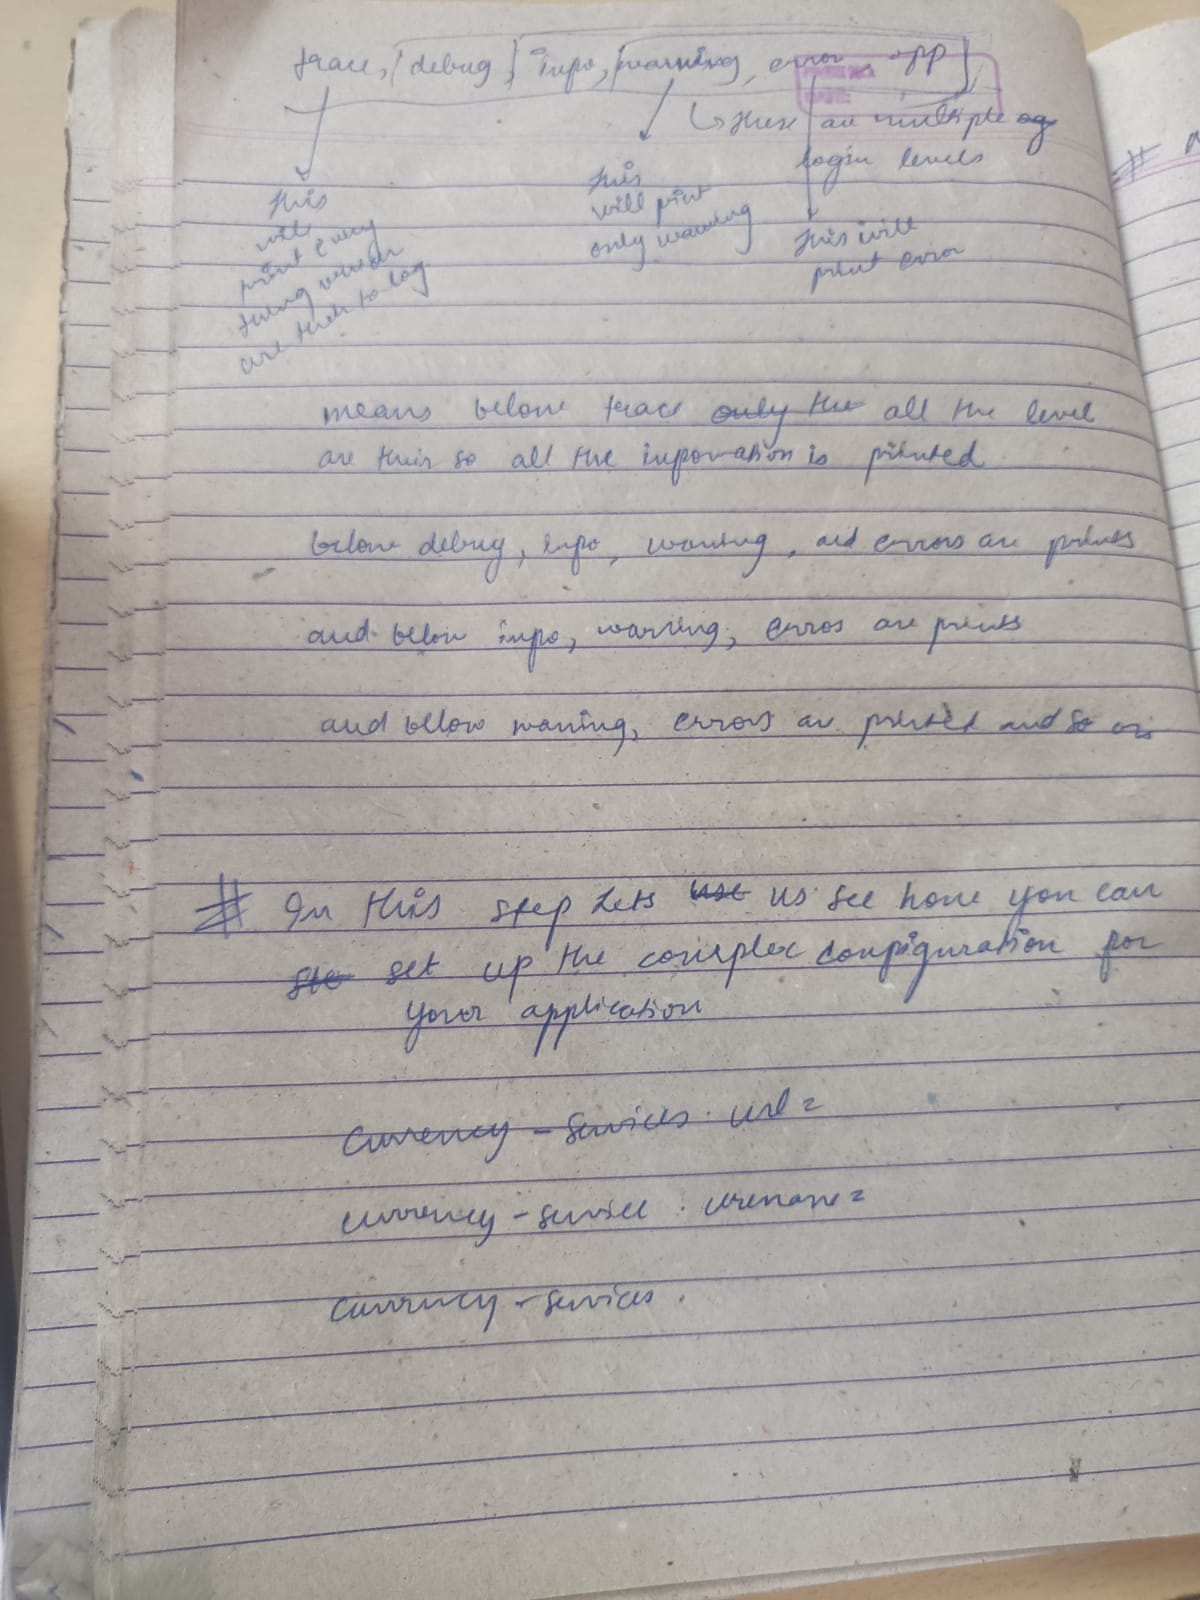 trace, [debug, info, [warning, error, off]
↳ these are multiple
login levels
this
will
print every
thing which
are their to log
this
will print
only warning
this will
print error
means below trace only the all the level
are their so all the information is printed
below debug, info, warning, and errors are prints
and below info, warning, erros are prints
and bellow warning, errors are printed and so on
# In this step Lets use us see how you can
set up the complex configuration for
your application
currency - services . url =
currency - service . usename =
currency - services .
#